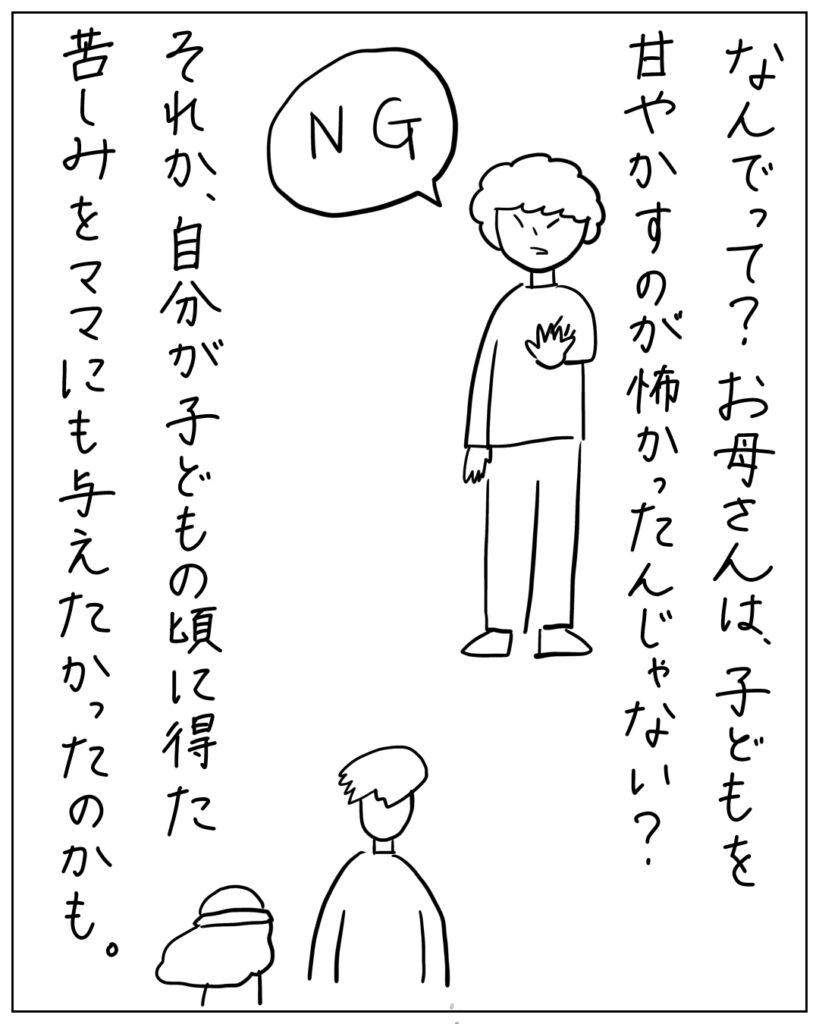 なんでって？お母さんは、子どもを
甘やかすのが怖かったんじゃない？
NG
それか、自分が子どもの頃に得た
苦しみをママにも与えたかったのかも。